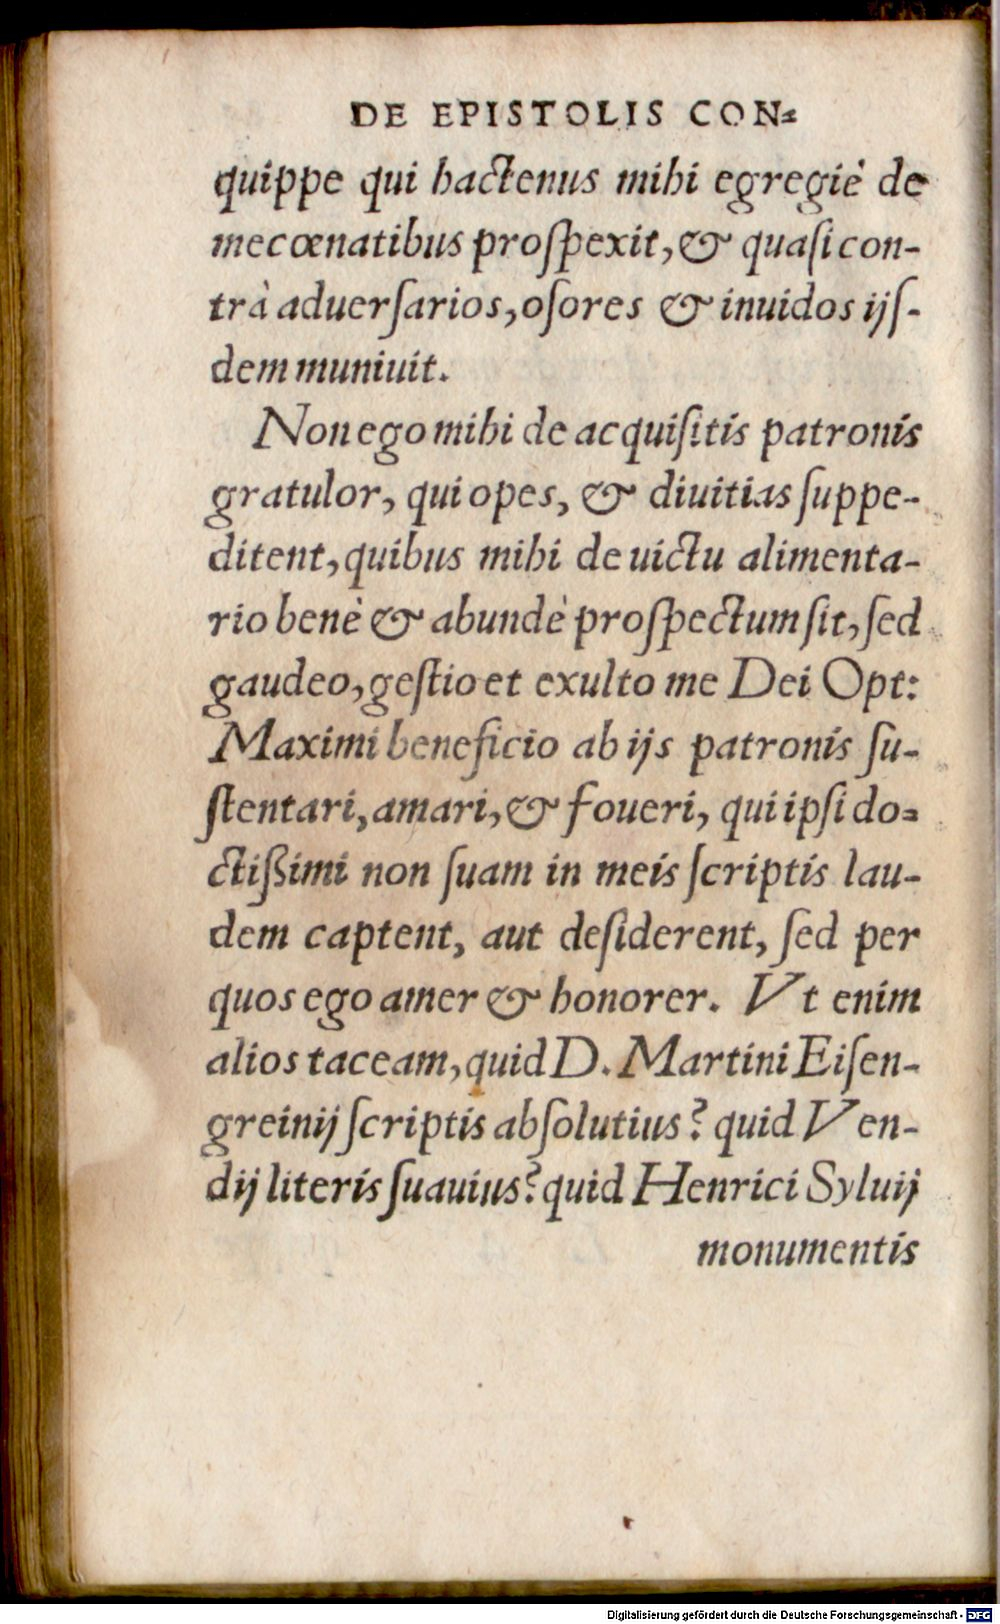 DE EPISTOLIS CON-
quippe qui hactenus mihi egregiè de
mecœnatibus proſpexit, & quaſi con-
trà aduerſarios, oſores & inuidos ijſ-
dem muniuit.
Non ego mihi de acquiſitis patronis
gratulor, qui opes, & diuitias ſuppe-
ditent, quibus mihi de uictu alimenta-
rio benè & abundè proſpectum ſit, ſed
gaudeo, geſtio et exulto me Dei Opt:
Maximi beneficio ab ijs patronis ſu-
ſtentari, amari, & foueri, qui ipſi do-
ctißimi non ſuam in meis ſcriptis lau-
dem captent, aut deſiderent, ſed per
quos ego amer & honorer. Vt enim
alios taceam, quid D. Martini Eiſen-
greinij ſcriptis abſolutius? quid Ven-
dij literis ſuauius? quid Henrici Syluij
monumentis
Digitalisierung gefördert durch die Deutsche Forschungsgemeinschaft - DFG